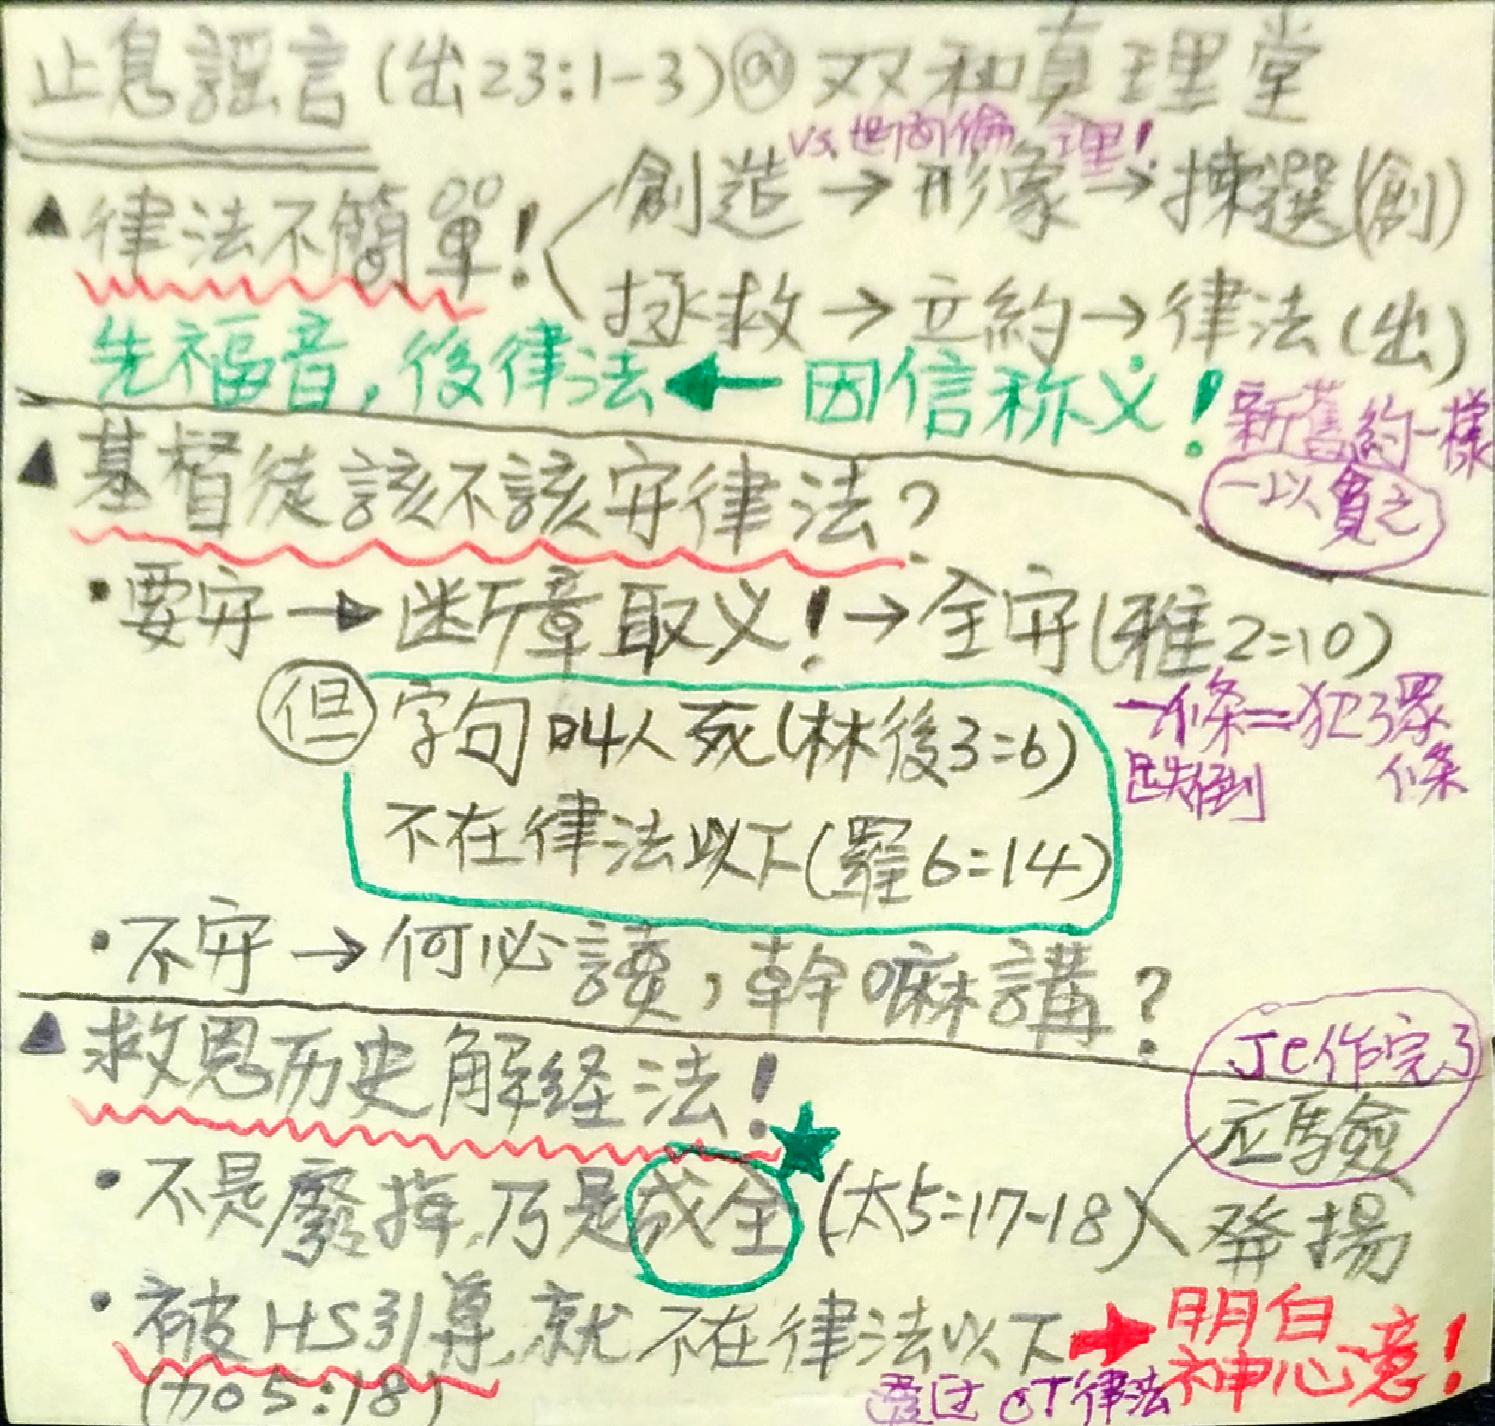 止息謠言(出23:1-3)@双和真理堂
vs.世俗倫理!
▲律法不簡單!
創造→形象→揀選(創)
拯救→立約→律法(出)
先福音,後律法←因信称义!
新舊約一樣
一以貫之
▲基督徒該不該守律法?
·要守→断章取义!→全守(雅2=10)
一條=犯了眾條
跌倒
但 字句叫人死(林後3=6)
不在律法以下(羅6=14)
·不守→何必讀,幹嘛講?
▲救恩历史解经法!
Je作完了
·不是廢掉,乃是成全★(太5=17-18)
应驗
發揚
·被HS引導,就不在律法以下→明白神心意!
(加5:18)
透过OT律法